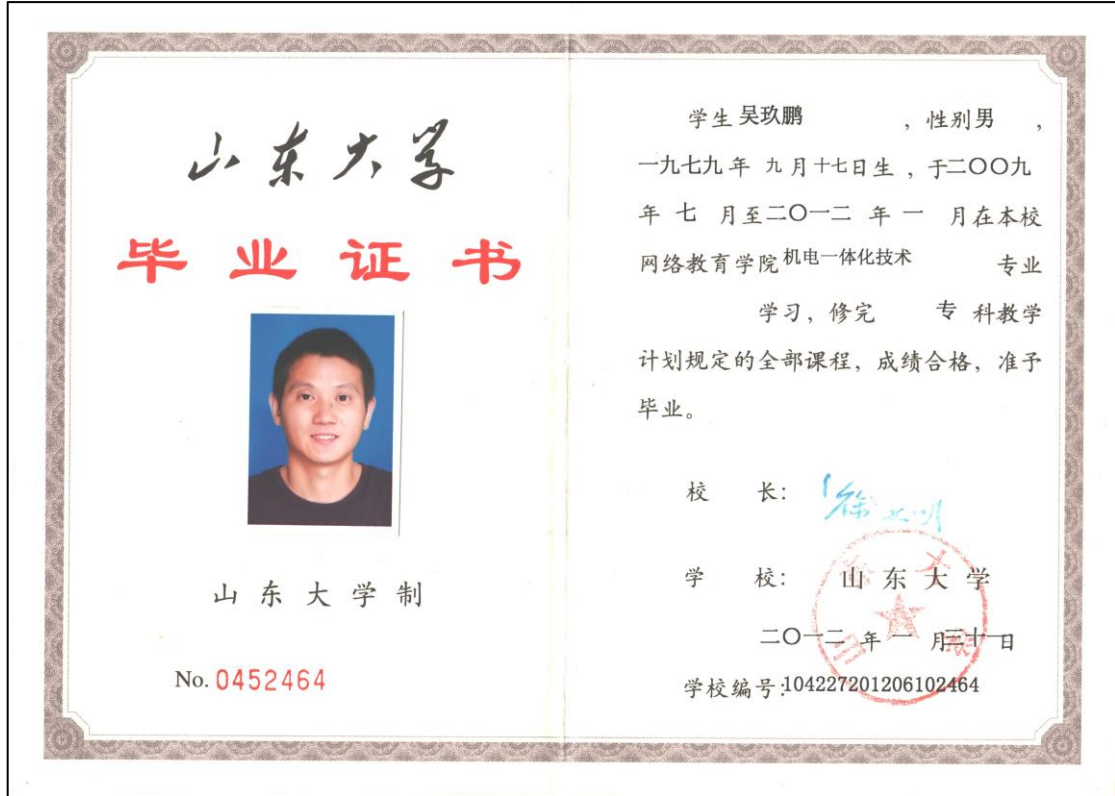 山东大学
毕业证书
山东大学制
No. 0452464
学生 吴玖鹏 ，性别 男 ，
一九七九 年 九 月 十七 日生 ，于 二〇〇九
年 七 月至 二〇一二 年 一 月在本校
网络教育学院 机电一体化技术 专业
学习，修完 专 科教学
计划规定的全部课程，成绩合格，准予
毕业。
校 长：
学 校： 山东大学
二〇一二 年 一 月 三十一 日
学校编号：104227201206102464